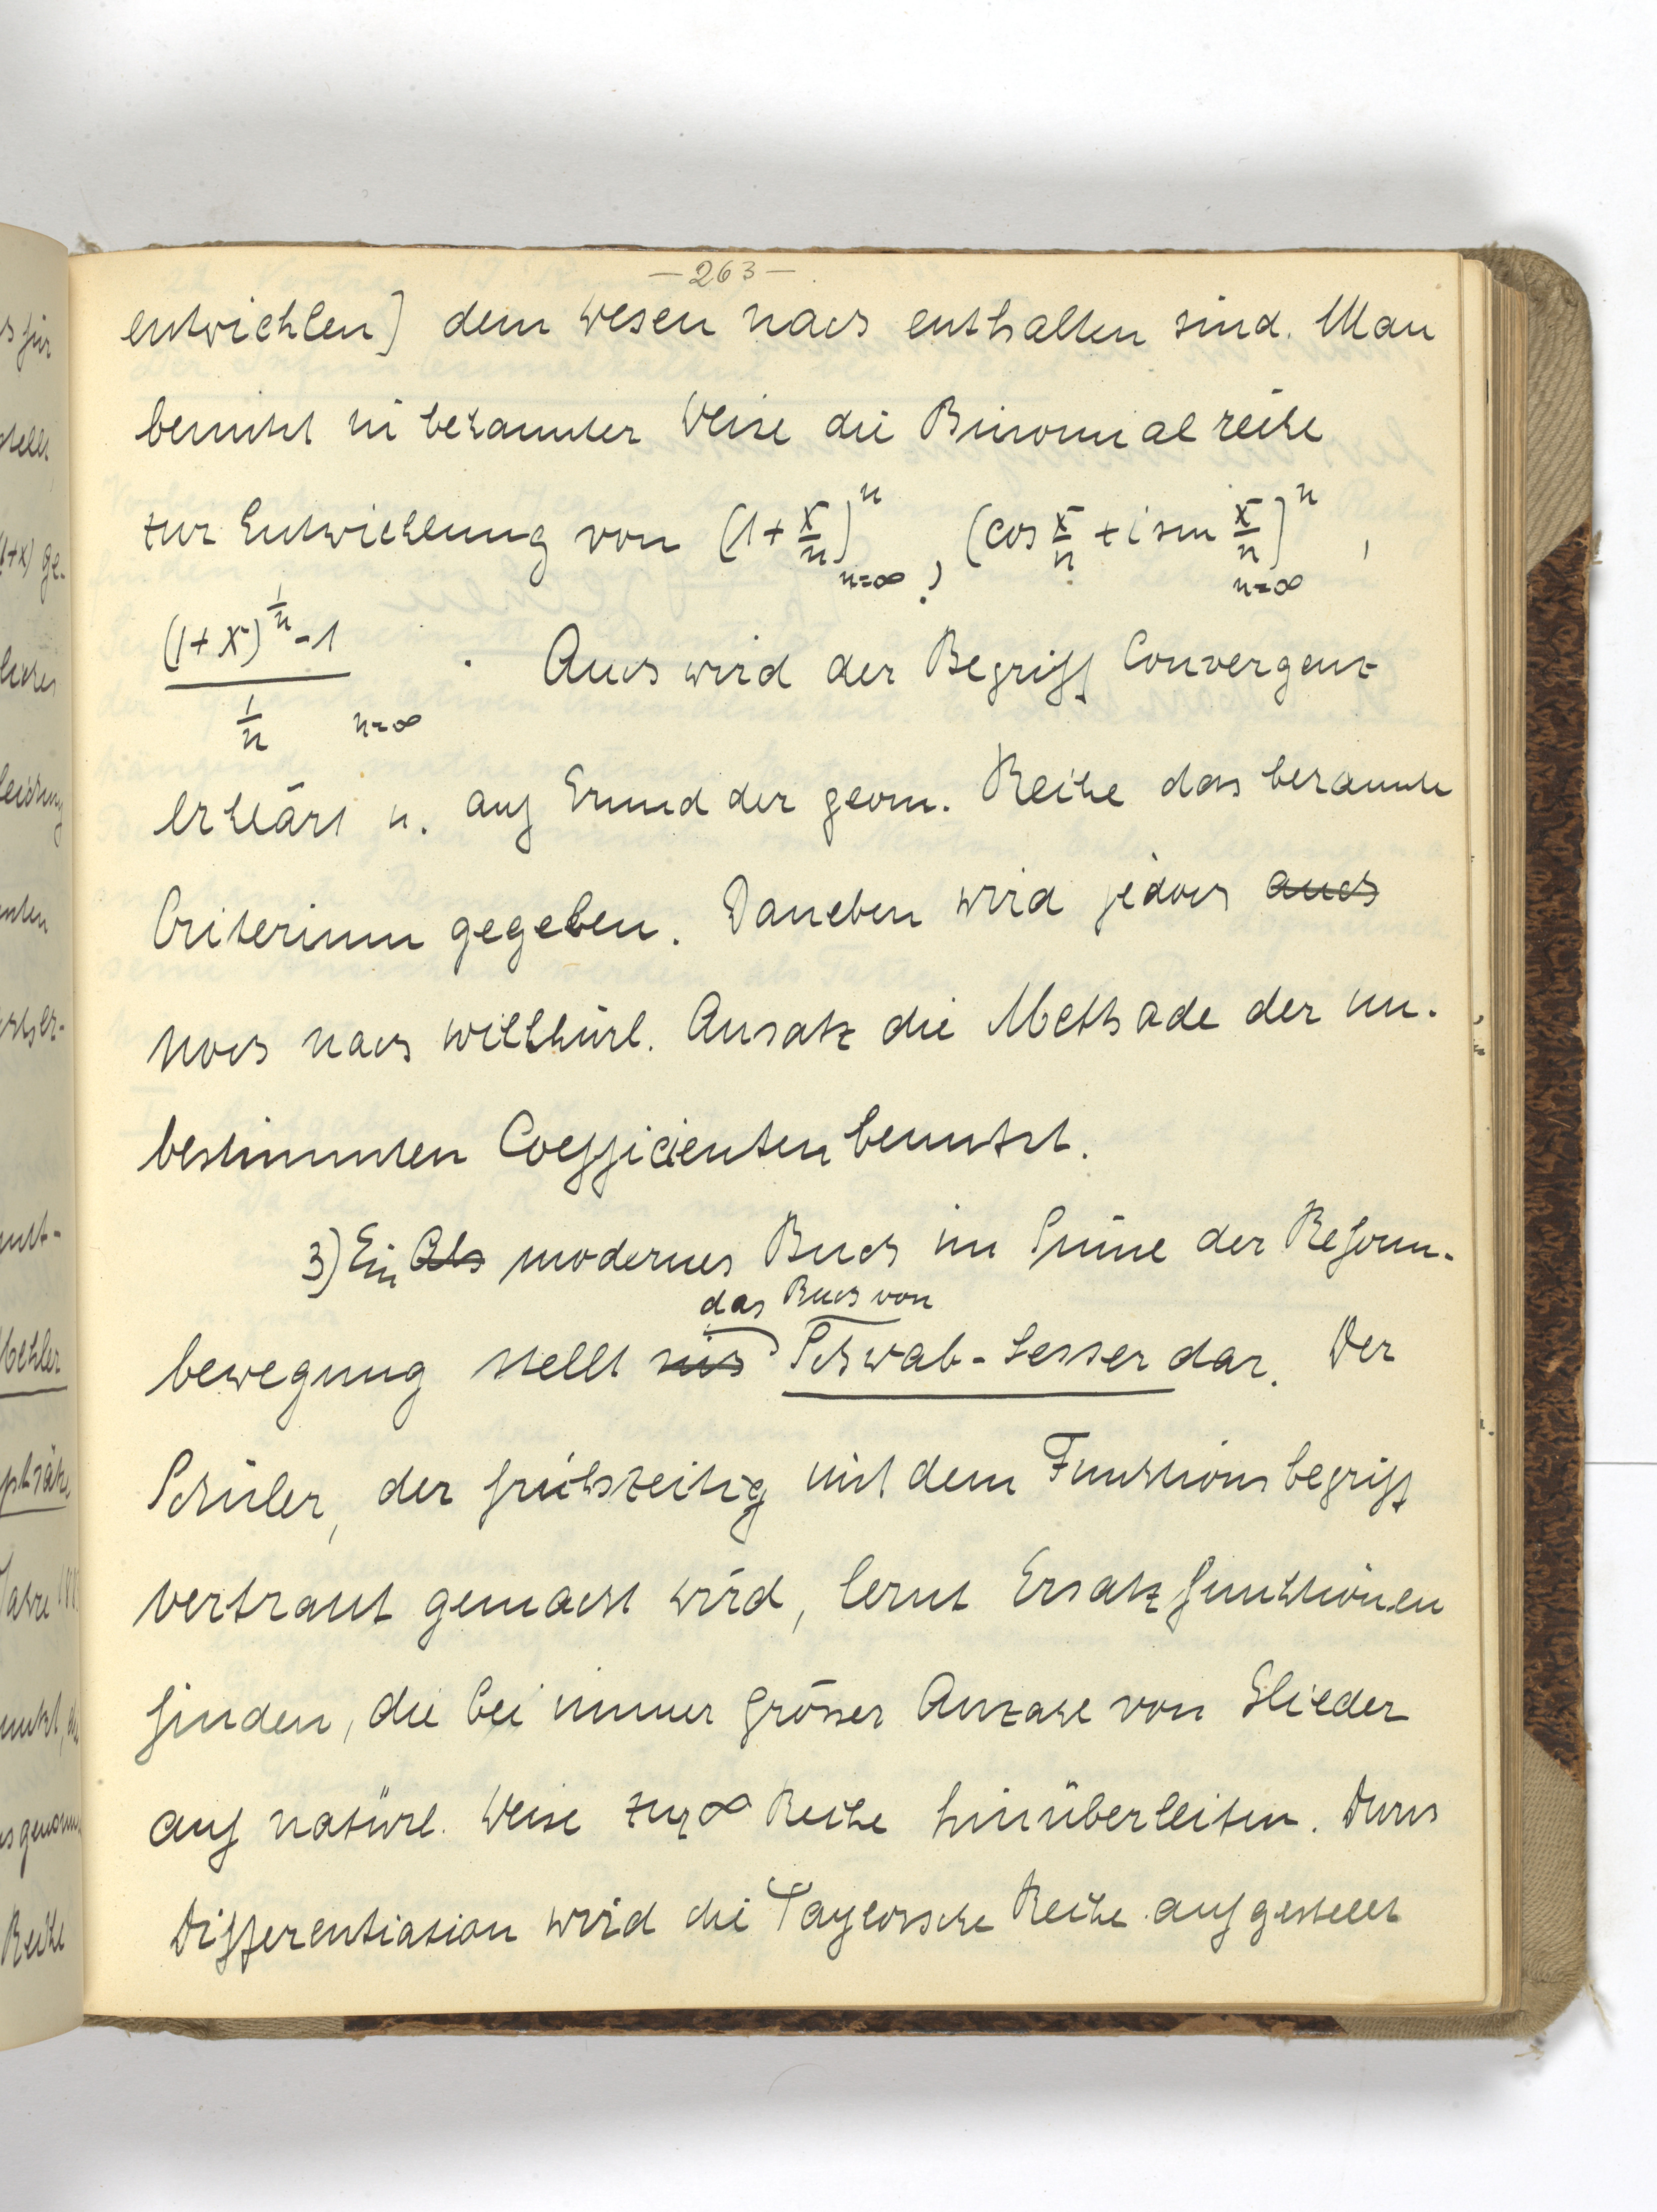 —263—
entwickeln] dem Wesen nach enthalten sind. Man
benutzt in bekannter Weise die Binomialreihe
zur Entwicklung von (1+x/n)^n n=∞, (cos x/n + i sin x/n)^n n=∞,
((1+x)^(1/n) - 1)/(1/n) n=∞ . Auch wird der Begriff Convergenz
erklärt u. auf Grund der geom. Reihe das bekannte
Criterium gegeben. Daneben wird jedoch auch
noch nach willkürl. Ansatz die Methode der un-
bestimmten Coefficienten benutzt.
3) Ein Als modernes Buch im Sinne der Reform-
das Buch von
bewegung stellt sich Schwab-Lesser dar. Der
Schüler, der frühzeitig mit dem Funktionsbegriff
vertraut gemacht wird, lernt Ersatzfunktionen
finden, die bei immer grösser Anzahl von Glieder
auf natürl. Weise zur ∞ Reihe hinüberleiten. Durch
Differentiation wird die Taylorsche Reihe aufgestellt
s für
stellt
(1+x) ge-
Mehler
Jahre
Reihe